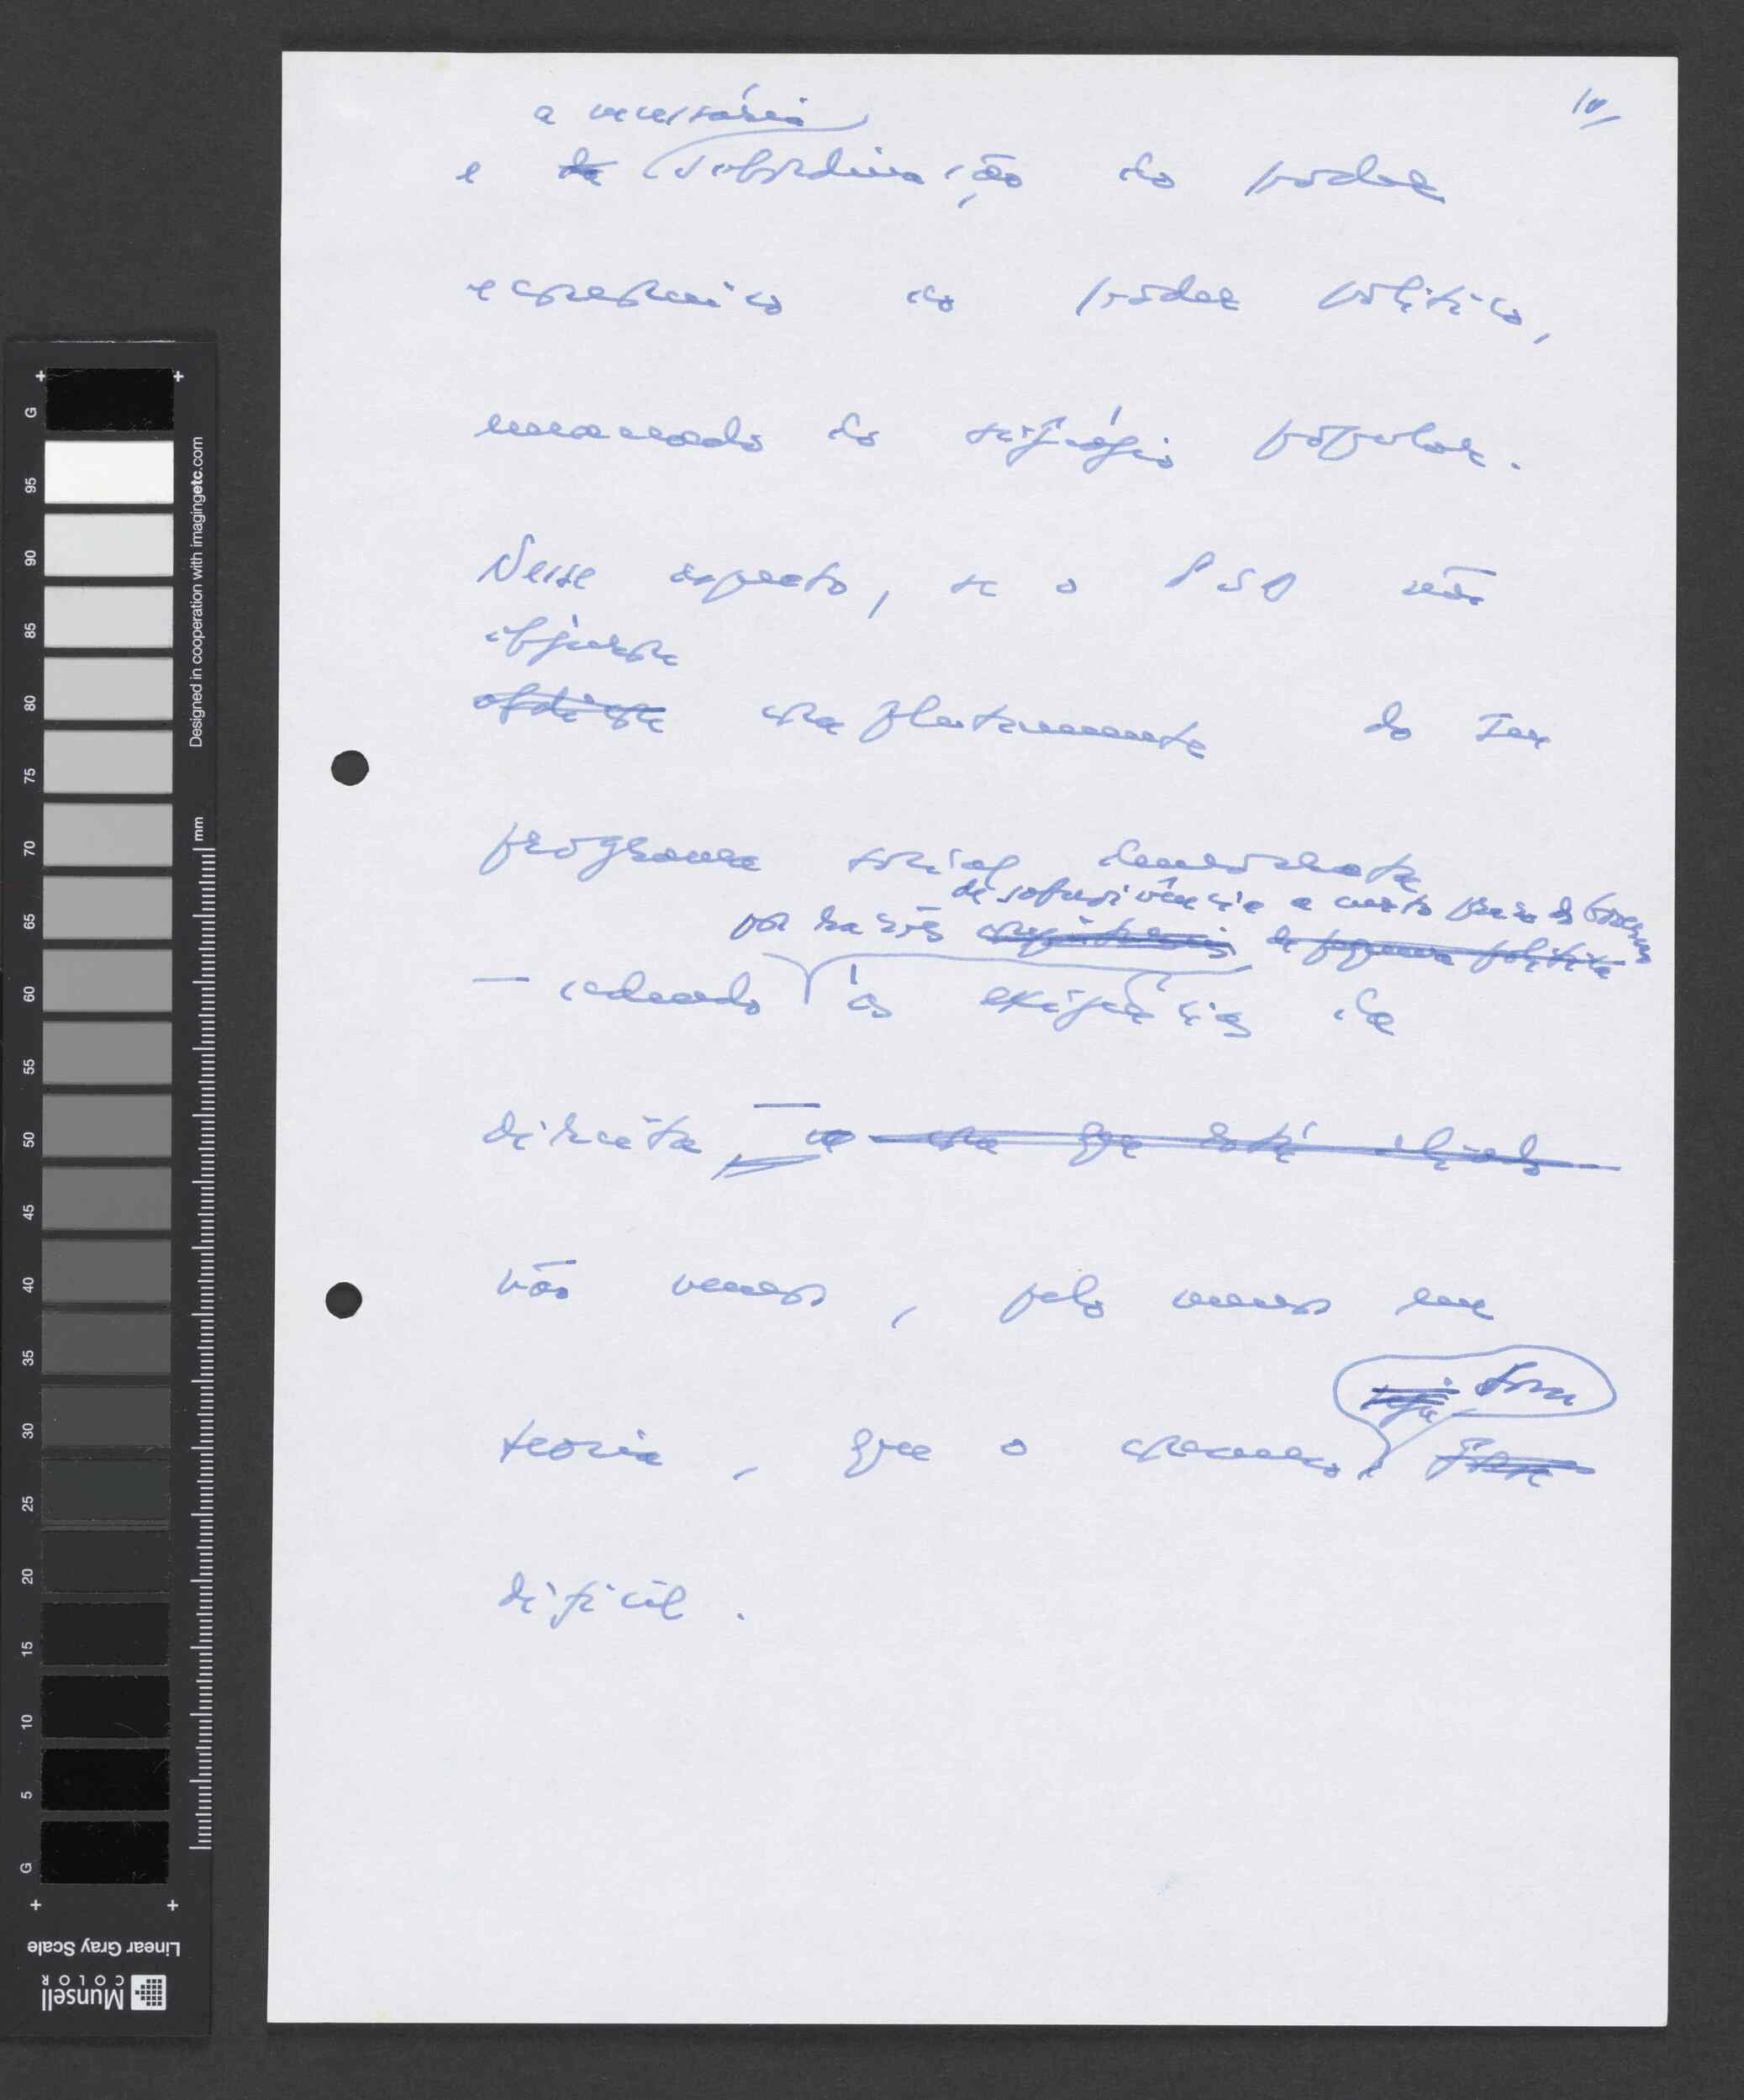 10/
a necessária
e da subordinação do poder
económico ao poder político,
emanado do sufrágio popular.
Nesse aspecto, se o PSD não
abjurar
abdicar completamente do seu
programa social democrata
de sobrevivência a curto prazo do Governo
por razões de política
— cedendo às exigências da
direita, — que está aliado
não vemos, pelo menos em
seja
teoria, que o caminho
difícil.
G 95 90 85 80 75 70 65 60 55 50 45 40 35 30 25 20 15 10 5 G
Designed in cooperation with imagingetc.com
mm
Linear Gray Scale
Munsell
COLOR